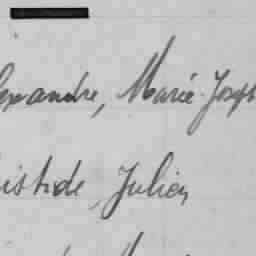 exandre, Marie-Joseph
istide, Julien